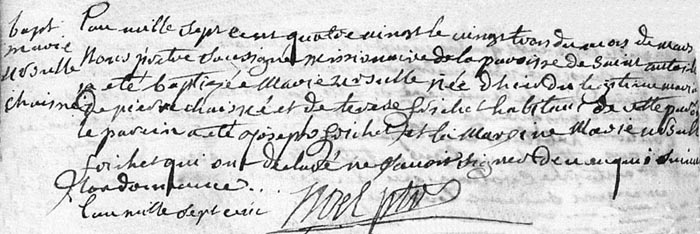 bapt
marie
ursulle
chaisné
L'an mille sept cent quatre vingt le vingt trois du mois de mars
Nous prêtre soussigné missionnaire de la paroisse de Saint
a été baptizée Marie ursulle née d'hier du légitime mariage
de pierre chaisné et de terese forchet habitant de cette paroisse
le parain a été Joseph forchet et la Maraine Marie ursulle
forchet qui ont declaré ne savoir signer de ce enqui suivant
l'ordonnance
L'an mille sept cent Noel ptre